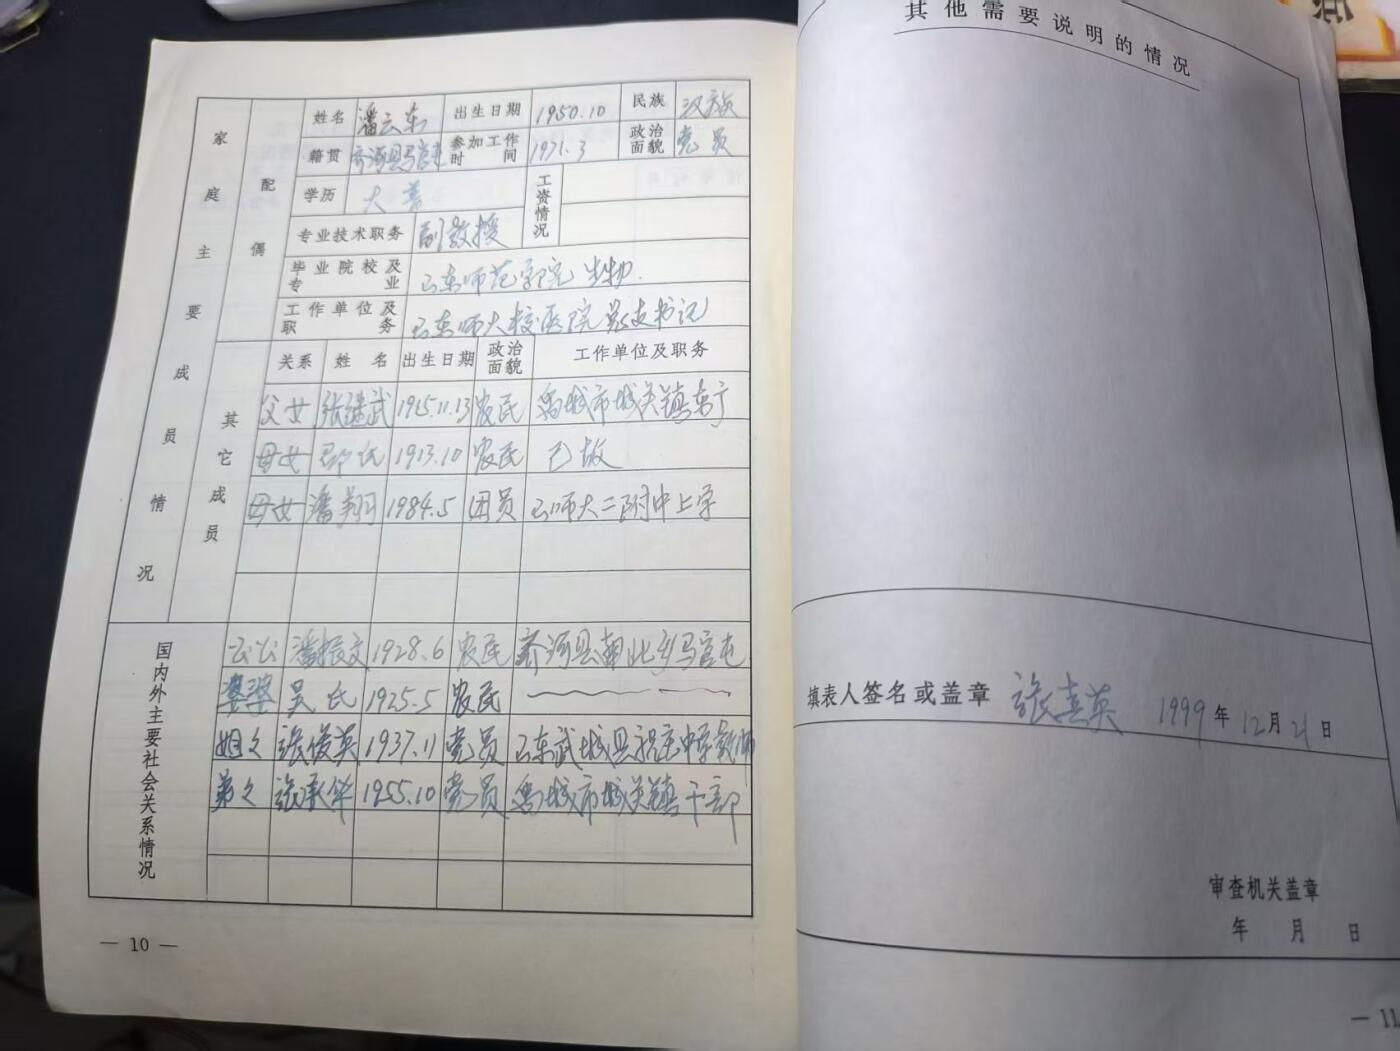 家庭主要成员情况
配偶
姓名 潘云东 出生日期 1950.10 民族 汉族
籍贯 齐河县马官屯 参加工作时间 1971.3 政治面貌 党员
学历 大普 工资情况
专业技术职务 副教授
毕业院校及专业 山东师范学院 生物
工作单位及职务 山东师大校医院 总支书记
其它成员
关系 姓名 出生日期 政治面貌 工作单位及职务
父女 张继武 1915.11.13 农民 禹城市城关镇
母女 邵氏 1913.10 农民 已故
母女 潘翔 1984.5 团员 山师大二附中上学
国内外主要社会关系情况
公公 潘振文 1928.6 农民 齐河县 乡马官屯
婆婆 吴氏 1925.5 农民
姐姐 张俊英 1937.11 党员 山东武城县 中学教师
弟弟 张承华 1955.10 党员 禹城市城关镇干部
— 10 —
其他需要说明的情况
填表人签名或盖章 张喜英 1999年12月21日
审查机关盖章
年 月 日
— 11